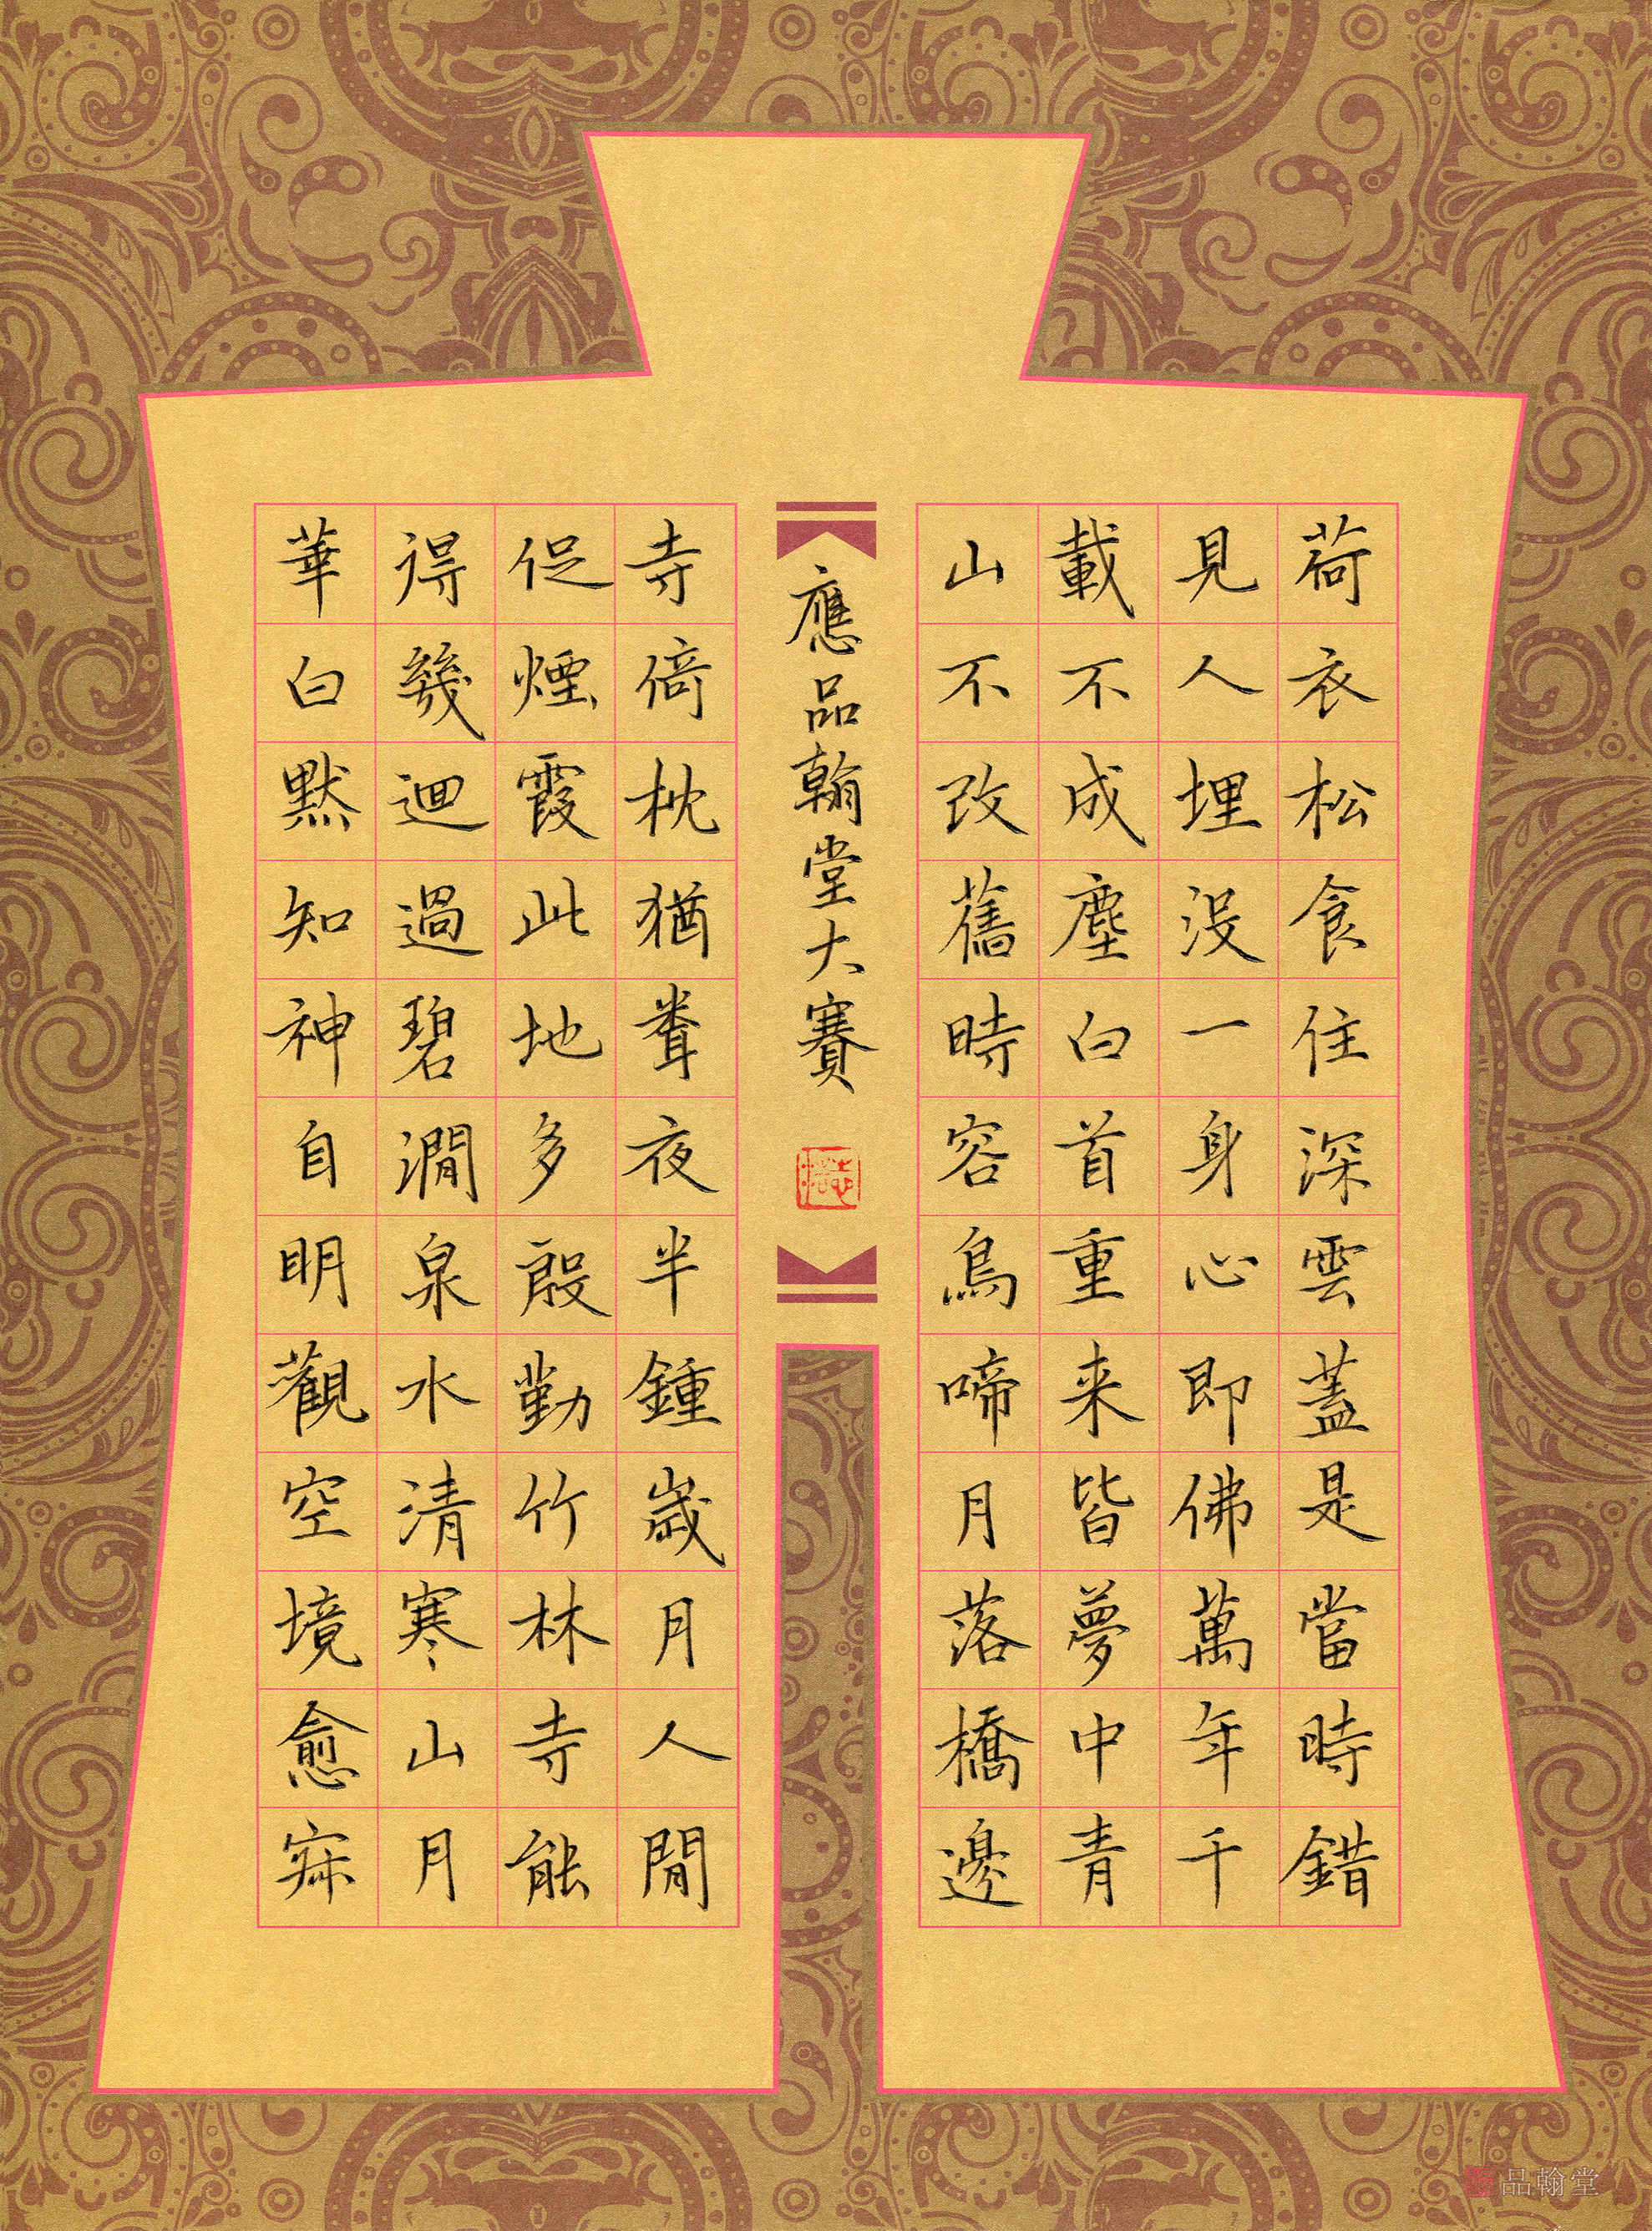 荷衣松食住深雲蓋是當時錯
見人埋没一身心即佛萬年千
載不成塵白首重来皆夢中青
山不改舊時容烏啼月落橋邊
應品翰堂大賽
寺倚枕猶聾夜半鍾歲月人間
促煙霞此地多殷勤竹林寺能
得幾迴過碧澗泉水清寒山月
華白默知神自明觀空境愈寂
品翰堂